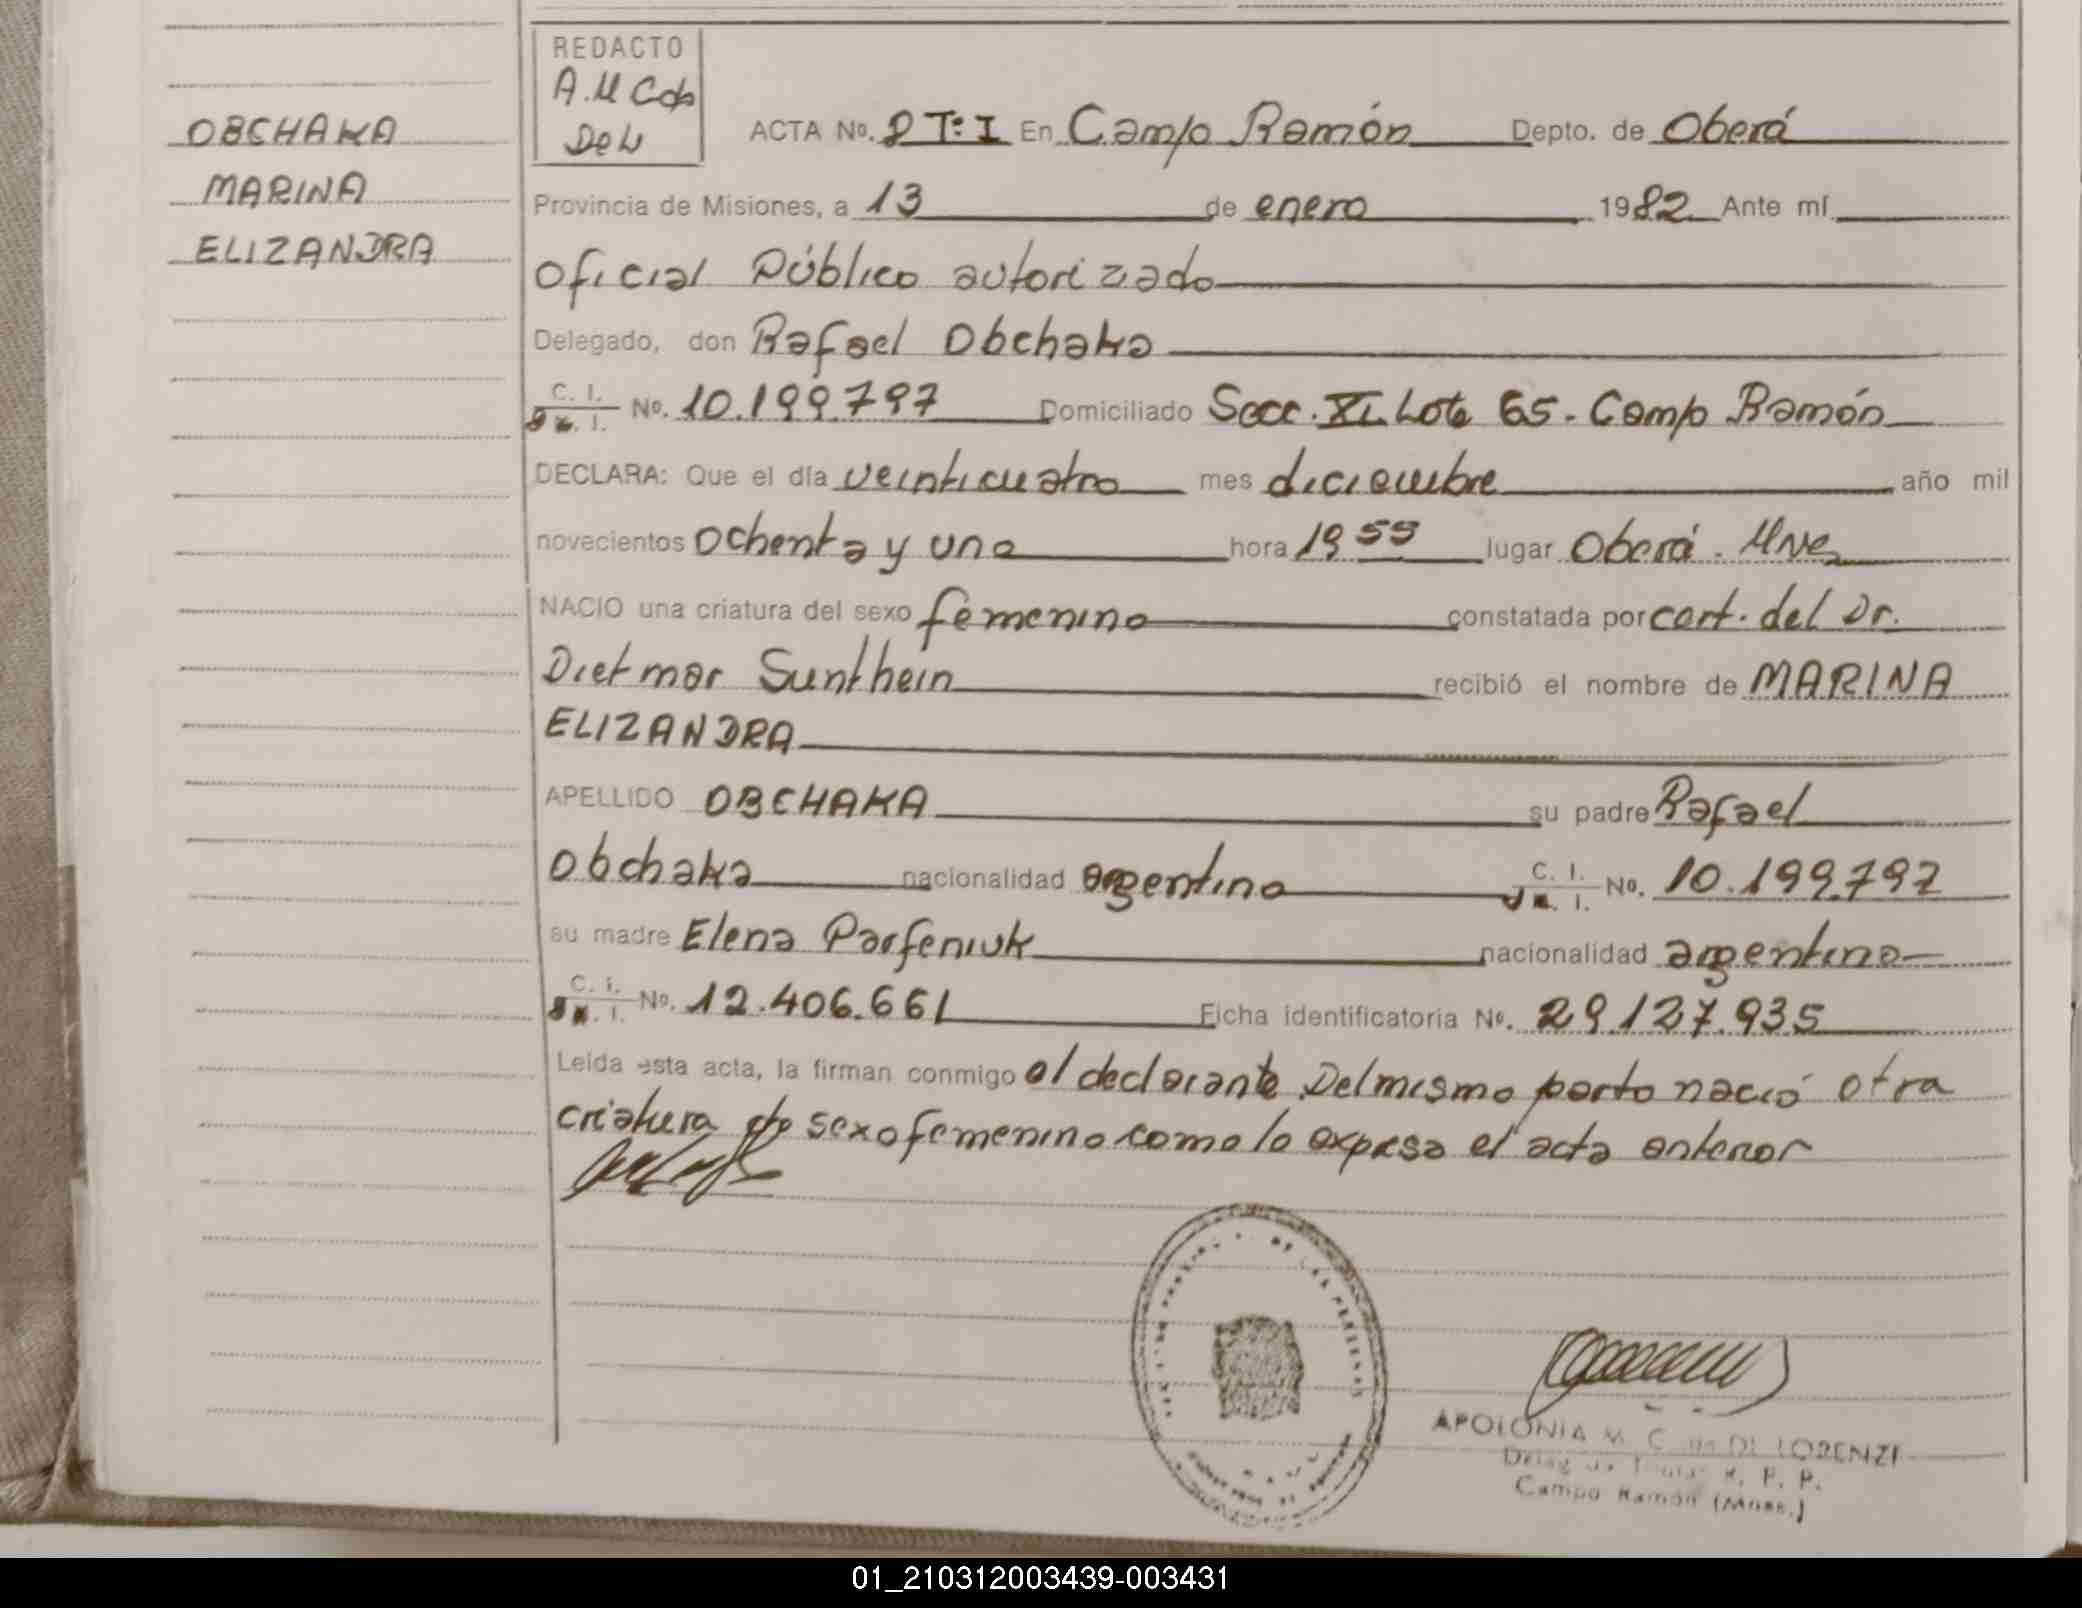 OBCHAKA
MARINA
ELIZANDRA
REDACTO
A.M Cds
De L
ACTA No. 2 Tº: I En Campo Ramón Depto. de Oberá
Provincia de Misiones, a 13 de enero 1982 Ante mí
Oficial Público autorizado
Delegado, don Rafael Obchaka
C. I. No. 10.199.797 Domiciliado Secc. XI. Lote 65 - Campo Ramón
DECLARA: Que el día veinticuatro mes diciembre año mil
novecientos ochenta y uno hora 19 55 lugar Oberá. Mnes
NACIO una criatura del sexo femenino constatada por cert. del Dr.
Dietmar Sunthein recibió el nombre de MARINA
ELIZANDRA
APELLIDO OBCHAKA su padre Rafael
Obchaka nacionalidad argentina C. I. No. 10.199.797
su madre Elena Parfeniuk nacionalidad argentina
C. I. No. 12.406.661 Ficha identificatoria No. 29.127.935
Leída esta acta, la firman conmigo el declarante. Del mismo parto nació otra
criatura de sexo femenino como lo expresa el acta anterior
APOLONIA M. C. DE DI LORENZI
R. P. P.
Campo Ramón (Mnes.)
01_210312003439-003431